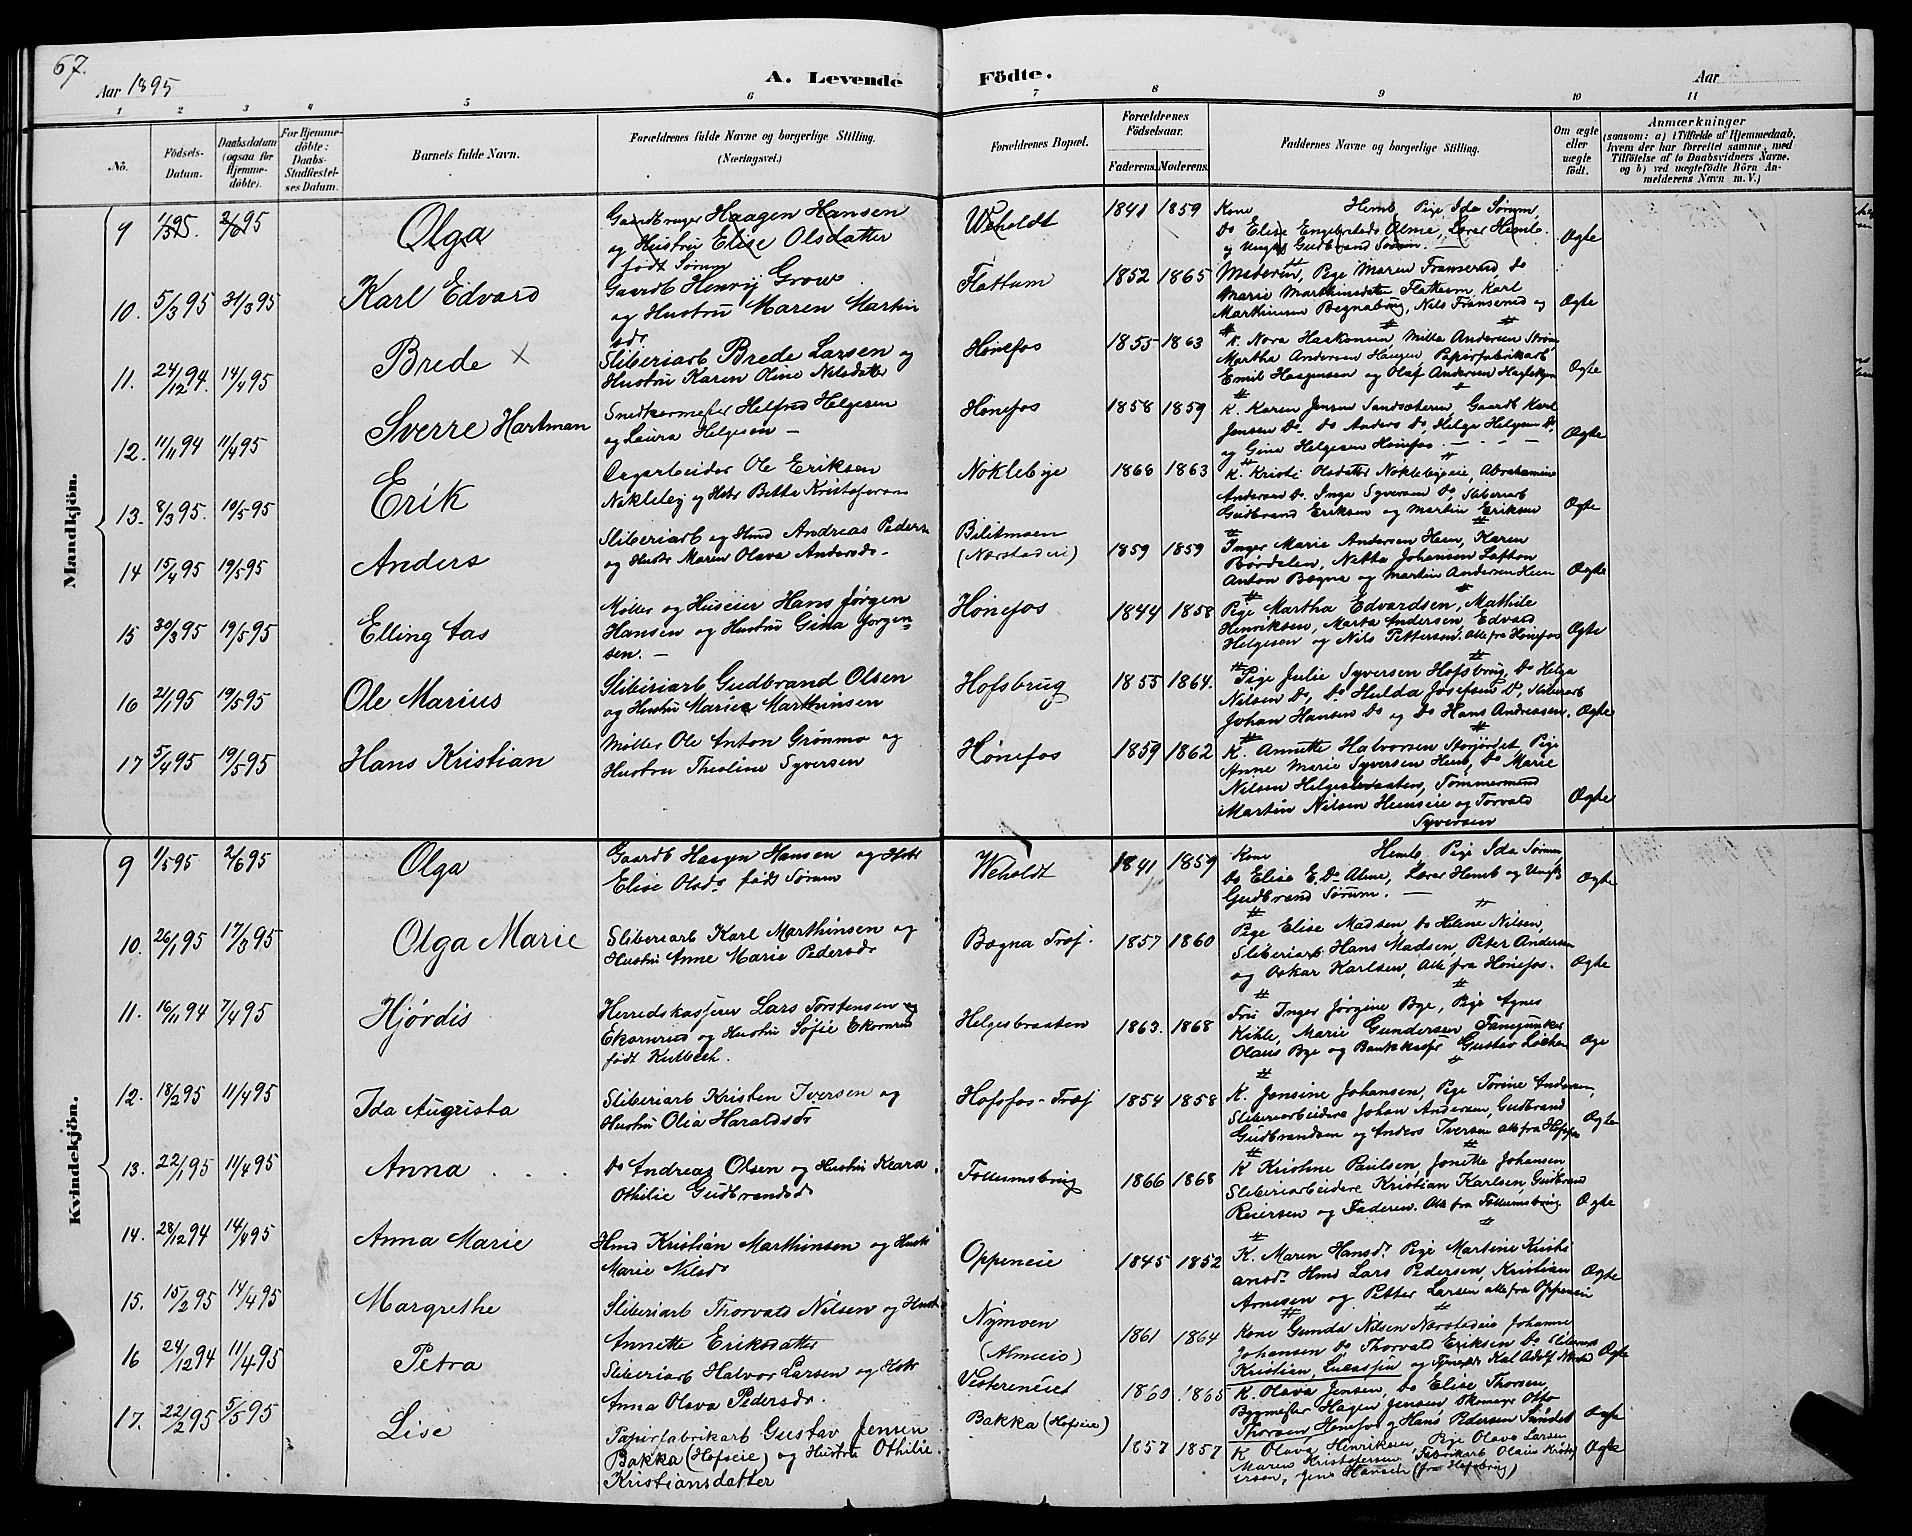 67.
Aar 1895
A. Levende Födte.
Aar
1 2 3 4 5 6 7 8 9 10 11
No.
Födsels-Datum.
Daabsdatum (ogsaa for Hjemme-döbte).
For Hjemme-döbte: Daabs-Stadfæstel-ses Datum.
Barnets fulde Navn.
Forældrenes fulde Navne og borgerlige Stilling. (Næringsvei.)
Forældrenes Bopæl.
Forældrenes Födselsaar.
Faderens. Moderens.
Faddernes Navne og borgerlige Stilling.
Om ægte eller uægte født.
Anmærkninger
(saasom: a) i Tilfælde af Hjemmedaab,
hvem der har forrettet samme, med
Tilföielse af to Daabsvidners Navne.
og b) ved uægtefödte Börn An-
melderens Navn m. V.)
Mandkjön.
9 1/5 95. 2/6 95 Olga
Gaardbruger Haagen Hansen
og Hustru Elise Olsdatter
født Sørum
Weholdt 1841 1859
Kone Hemb Pige Ida Sørum,
Do Elise Engebretsds Alme, Lærer Hemb
og Ungk Gudbrand Sørum. Ægte
10. 5/3 95 31/3 95 Karl Edvard
Gaardb Henrij Grow
og Hustru Maren Martin
sdr
Flattum 1852 1865
Moderen, Pige Maren Franserud Do
Marie Marthinsdatter Flattum, Karl
Marthinsen Begnabrug, Nils Franserud og Ægte
11. 24/12 94. 14/4 95 Brede x
Sliberiarb Brede Larsen og
Hustru Karen Oline Nilsdatter
Hønefos 1855 1863
K. Nora Haakonsen, Milla Andersen
Martha Andersen Haugen Papirfabrikarb
Emil Haagensen og Olaf Andersen Ægte
12. 11/11 94 11/4 95 Sverre Hartman
Snedkermester Helfred Helgesen
og Laura Helgesen —
Hønefos 1858 1859
K. Karen Jensen Sandsæteren, Gaardb Karl
Jensen Do Do Anders Do, Helge Helgesen Do,
og Gina Helgesen Hønefos. Ægte
13. 8/3 95. 10/5 95 Erik
Dagarbeider Ole Eriksen
Nøkleby og Hstr Betta Kristofersen
Nøklebye 1868 1863
K. Kristi Olsdatter Nøklebyeie, Abrahamine
Andersen Do. Inga Syversen Do, Sliberiarb
Gudbrand Eriksen og Martin Eriksen Ægte
14 15/4 95 19/5 95 Anders
Sliberiarb og Hmd Andreas Peders
og Hustr Maren Olava Andersdr
Bilitmoen
(Nærstadeie) 1859 1859
Inger Marie Andersen Heen, Karen
Børdalen, Netta Johansen Løfton
Anton Bægna og Martin Andersen Heen Ægte
15 30/3 95 19/5 95 Elling tas
Møller og Huseier Hans Jørgen
Hansen og Hustru Gina Jørgen-
sen. —
Hønefos 1844 1858
Pige Martha Edvardsen, Mathilde
Henriksen, Marta Andersen, Edvard
Helgesen og Nils Pettersen. alle fra Hønefos Ægte
16 2/1 95 19/5 95 Ole Marius
Sliberiarb Gudbrand Olsen
og Hustru Marie Marthinsen
Hofsbrug 1855 1864.
Pige Julie Syversen Hofsbrug, Do Helga
Nilsen Do, Do Hulda Josefsen Do, Sliberarb
Johan Hansen Do og Do Hans Andreassen, Ægte
17 5/4 95 19/5 95 Hans Kristian
Møller Ole Anton Grønmo og
Hustru Theoline Syversen
Hønefos 1859 1862
K. Annette Halvorsen Storjordet, Pige
Anne Marie Syversen Hemb, Do Marie
Nilsen Helgesbraaten, Tømmermand
Martin Nilsen Heenseie og Torvald
Syversen Ægte
Kvindekjön.
9 1/5 95 2/6 95 Olga
Gaardb Haagen Hansen og Hstr
Elise Olsdr født Sørum
Weholdt 1841 1859
Kone Hemb, Pige Ida Sørum,
Do Elise E. Dr Alme, Lærer Hemb og Ungk
Gudbrand Sørum. — Ægte
10. 26/1 95 17/3 95 Olga Marie
Sliberiarb Karl Marthinsen og
Hustru Anne Marie Pedersdr
Bægna Træf. 1857 1860
Pige Elise Madsen, Do Helene Nilsen,
Sliberiarb Hans Madsen, Peter Andersen
og Oskar Karlsen, Alle fra Hønefos. Ægte
11. 16/11 94 7/4 95 Hjørdis
Herredskasserer Lars Torstensen og
Ekornrud og Hustru Sofie Ekornrud
født
Helgesbraaten 1863. 1868
Fru Inger Jørgine Bye, Pige Agnes
Kihle, Marie Gundersen, Fanejunker
Olaus Bye og Bankkasser Gustav Lie Æge
12. 18/2 95 11/4 95 Ida Augusta
Sliberiarb Kristen Iversen og
Hustru Olia Haraldsdr
Hofsfos-Træf 1854 1858
K. Jonsine Johansen, Pige Torine Andersen,
Sliberiarbeidere Johan Andersen, Gudbrand
Gudbrandsen og Anders Iversen alle fra Hofsfos Ægte
13. 22/1 95 11/4 95 Anna
Do Andreas Olsen og Hustru Klara
Othilie Gudbrandsdr
Follumsbrug 1866 1868
K Kristine Paulsen, Jonette Johansen
Sliberiarbeidere Kristian Karlsen Gudbrand
Reiersen og Faderen. Alle fra Follumsbrug. Ægte
14. 28/12 94 14/4 95 Anna Marie
Hmd Kristian Marthinsen og Hustr
Marie Nilsdr
Oppeneie 1845 1852
K. Maren Hansdr Pige Martine Kristi
ansdr Hmd Lars Pedersen, Kristian
Arnesen og Petter Larsen alle fra Oppeneie Ægte
15. 15/2 95 14/4 95 Margrethe
Sliberiarb Thorvald Nilsen og Hustr
Annette Eriksdatter
Nymoen
(Almeie) 1861 1864
Kone Gunda Nilsen Nærstadeie Johanne
Johansen Do Thorvald Eriksen Do Sliberiarb
Kristian Lucassen og Karl Adolf Ægte
16 24/12 94 11/4 95 Petra
Sliberiarb Halvor Larsen og Hstr
Anna Olava Pedersdr
Vestereneiet 1860 1865
K. Olava Jensen, Do Elise Thorsen,
Bygmester Hagen Jensen, Skomager Otto
Thorsen, Hønefos og Hans Pedersen Ægte
17. 22/2 95 5/5 95 Lise
Papirfabrikarb Gustav Jensen
Bakka (Hofseie) og Hustru Othilie
Kristiansdatter
Bakka (Hofseie) 1857 1857
K Olava Henriksen, Pige Olava Larsen
Maren Kristofersen, Fabrikarb Olaus Krist
ersen, Jens Hansen (fra Hofsbrug) Ægte